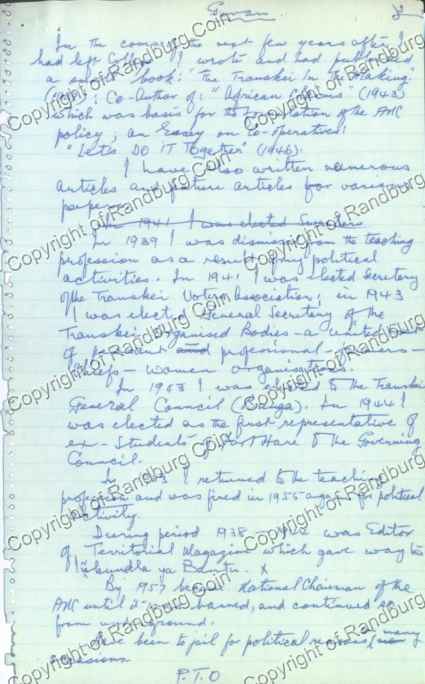 Govan
In the course the next few years after I
had left College I wrote and had published
a book: "The Transkei In The Making"
Co-Author of: "African Claims" (1943)
which was basis for the formulation of the ANC
policy, an Essay on Co-operatives:
"Let's DO IT Together" (1946).
I have also written numerous
articles and feature articles for various
papers.
In 1941 I was elected Secretary
In 1939 I was dismissed from the teaching
profession as a result of my political
activities. In 1941 I was elected Secretary
of the Transkei Voters Association; in 1943
I was elected General Secretary of the
Transkei Organised Bodies - a united
of peasant and professional, teachers -
chiefs - women organisations.
In 1943 I was elected to the Transkei
General Council (Bunga). In 1944 I
was elected as the first representative of
ex-Students of Fort Hare to the Governing
Council.
In I returned to the teaching
profession and was fired in 1955 again for political
activity
During period 1938 - was Editor
of Territorial Magazine which gave way to
Inkundla ya Bantu. x
By 1957 became National Chairman of the
ANC until it was banned, and continued so
from underground.
Have been to jail for political reasons, on many
occasions
P.T.O
Copyright of Randburg Coin